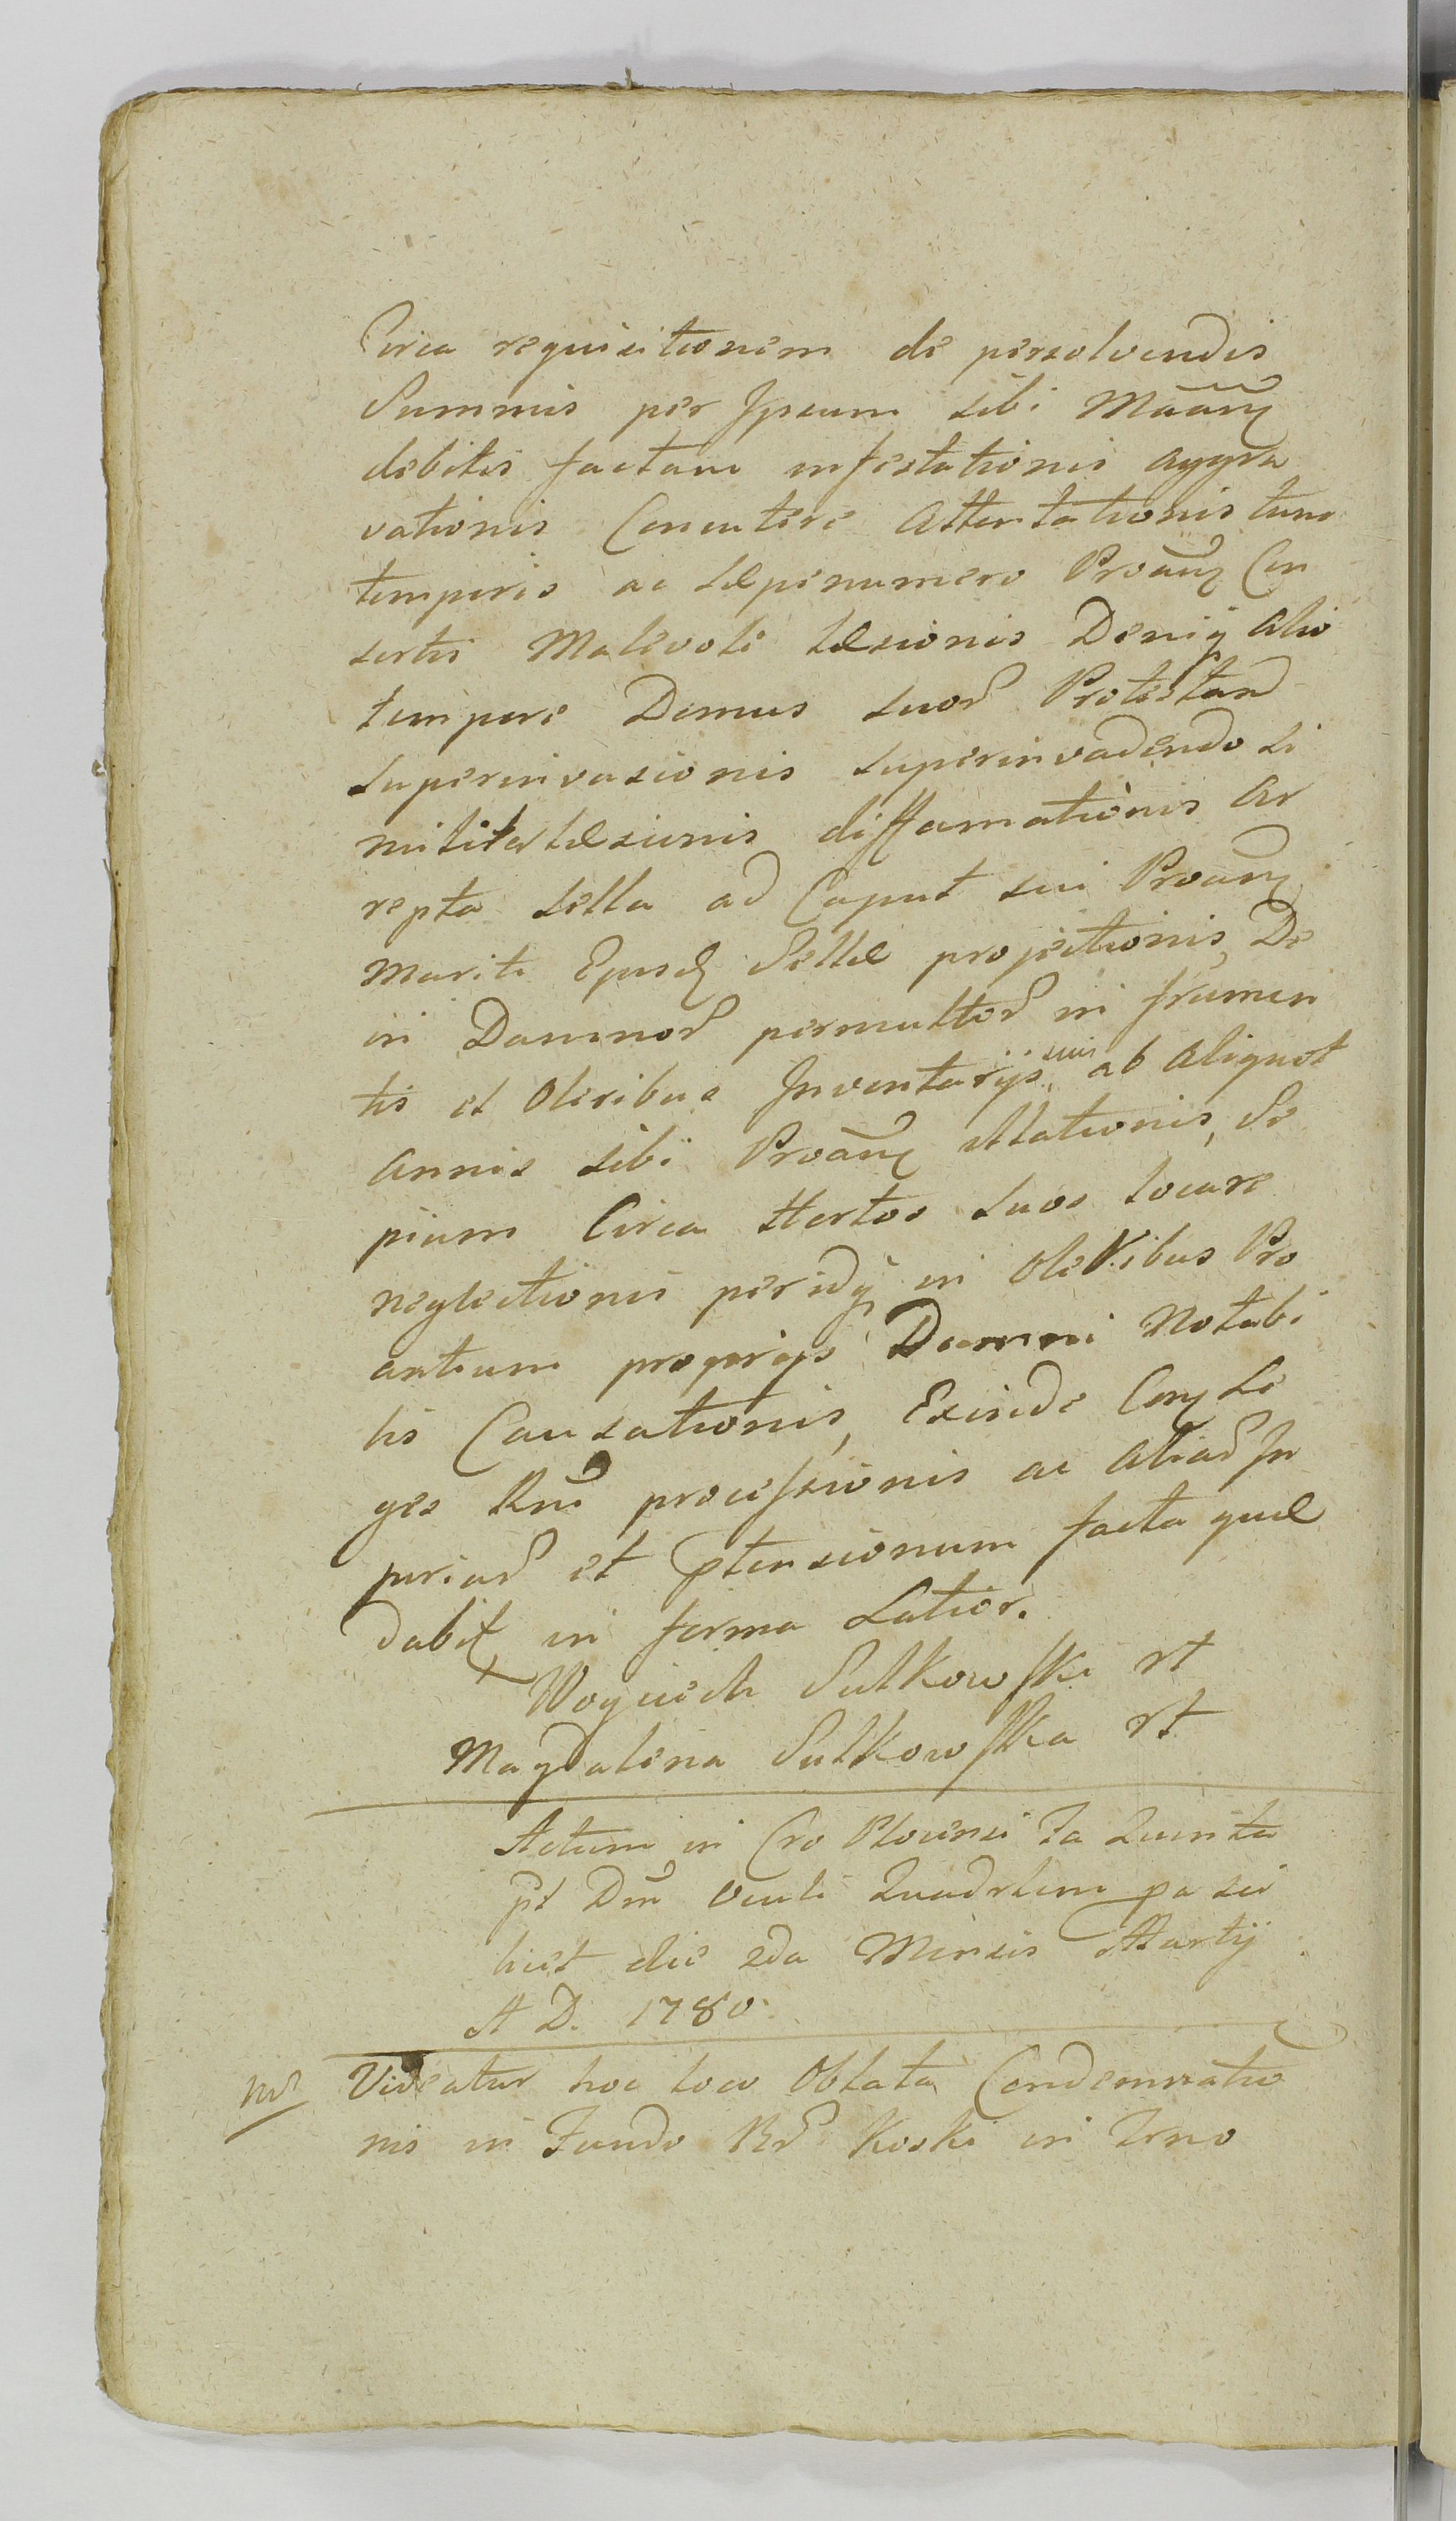 Circa requisitionem de persolvendis
Summis per Ipsum sibi Mãanᷓ
debitis factam infestationis aggra
vationis Concutere Attentationis tunc
temporis ac sæpenumero Proanᷓ Con
sortis Malevole læsionis Deniq alio
tempore Domus suor Protestand
superinvasionis superinvadendo si
militer læsionis diffamationis Ar
repta sella ad Caput sui Proanᷓ
Mariti Ejusd Sellæ projectionis, De
in Damnor permultor in frumen
tis et Oleribus Inventarijs suis ab aliquot
Annis sibi Proanᷓ illationis, Se
pium Circa Hortos suos locare
neglectionis peridq in Oleribus Pro
antium proprijs Damni Notabi
lis Causationis, Exinde Conq Le
ges Rni processionis ac aliar In
juriar et ptensionum facta quæ
dabit in forma Latior.
Woyciech Sulkowski rt
Magdalena Sulkowska rt
Actum in Cro Plocensi Fa Quinta
pt Dm̃ Oculi Quadrlem pa sci
licet die 2da Mensis Martij
A D. 1780.
Nr Videatur hoc loco Oblata Condemnatio
nis in Fundo Rd Koski in Trno